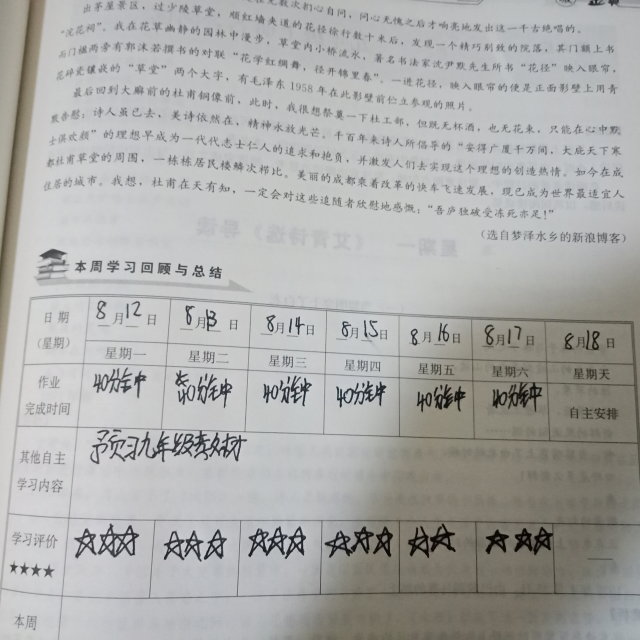 出茅屋景区，过少陵草堂，顺红墙夹道的花径徐行数十米后，发现一个精巧别致的院落，其门额上书
“浣花祠”。我在花草幽静的园林中漫步，草堂内小桥流水，著名书法家沈尹默先生所书“花径”映入眼帘，
而门楹两旁有郭沫若撰书的对联“花学红绸舞，径开锦里春”。一进花径，映入眼帘的便是正面影壁上用青
花碎瓷镶嵌的“草堂”两个大字，有毛泽东1958年在此影壁前伫立参观的照片。
最后回到大廨前的杜甫铜像前，此时，我很想祭奠一下杜工部，但既无杯酒，也无花束，只能在心中默
默告慰：诗人虽已去，美诗依然在，精神永放光芒。千百年来诗人所倡导的“安得广厦千万间，大庇天下寒
士俱欢颜”的理想早成为一代代志士仁人的追求和抱负，并激发人们去实现这个理想的创造热情。如今在成
都杜甫草堂的周围，一栋栋居民楼鳞次栉比。美丽的成都乘着改革的快车飞速发展，现已成为世界最适宜人
住居的城市。我想，杜甫在天有知，一定会对这些追随者欣慰地感慨：“吾庐独破受冻死亦足！”
（选自梦泽水乡的新浪博客）
本周学习回顾与总结
日期 8月12日 8月13日 8月14日 8月15日 8月16日 8月17日 8月18日
（星期） 星期一 星期二 星期三 星期四 星期五 星期六 星期天
作业 40分钟 40分钟 40分钟 40分钟 40分钟 40分钟
完成时间 自主安排
其他自主 预习九年级教材
学习内容
学习评价 ☆☆☆ ☆☆☆ ☆☆☆ ☆☆☆ ☆☆ ☆☆☆
★★★★
本周